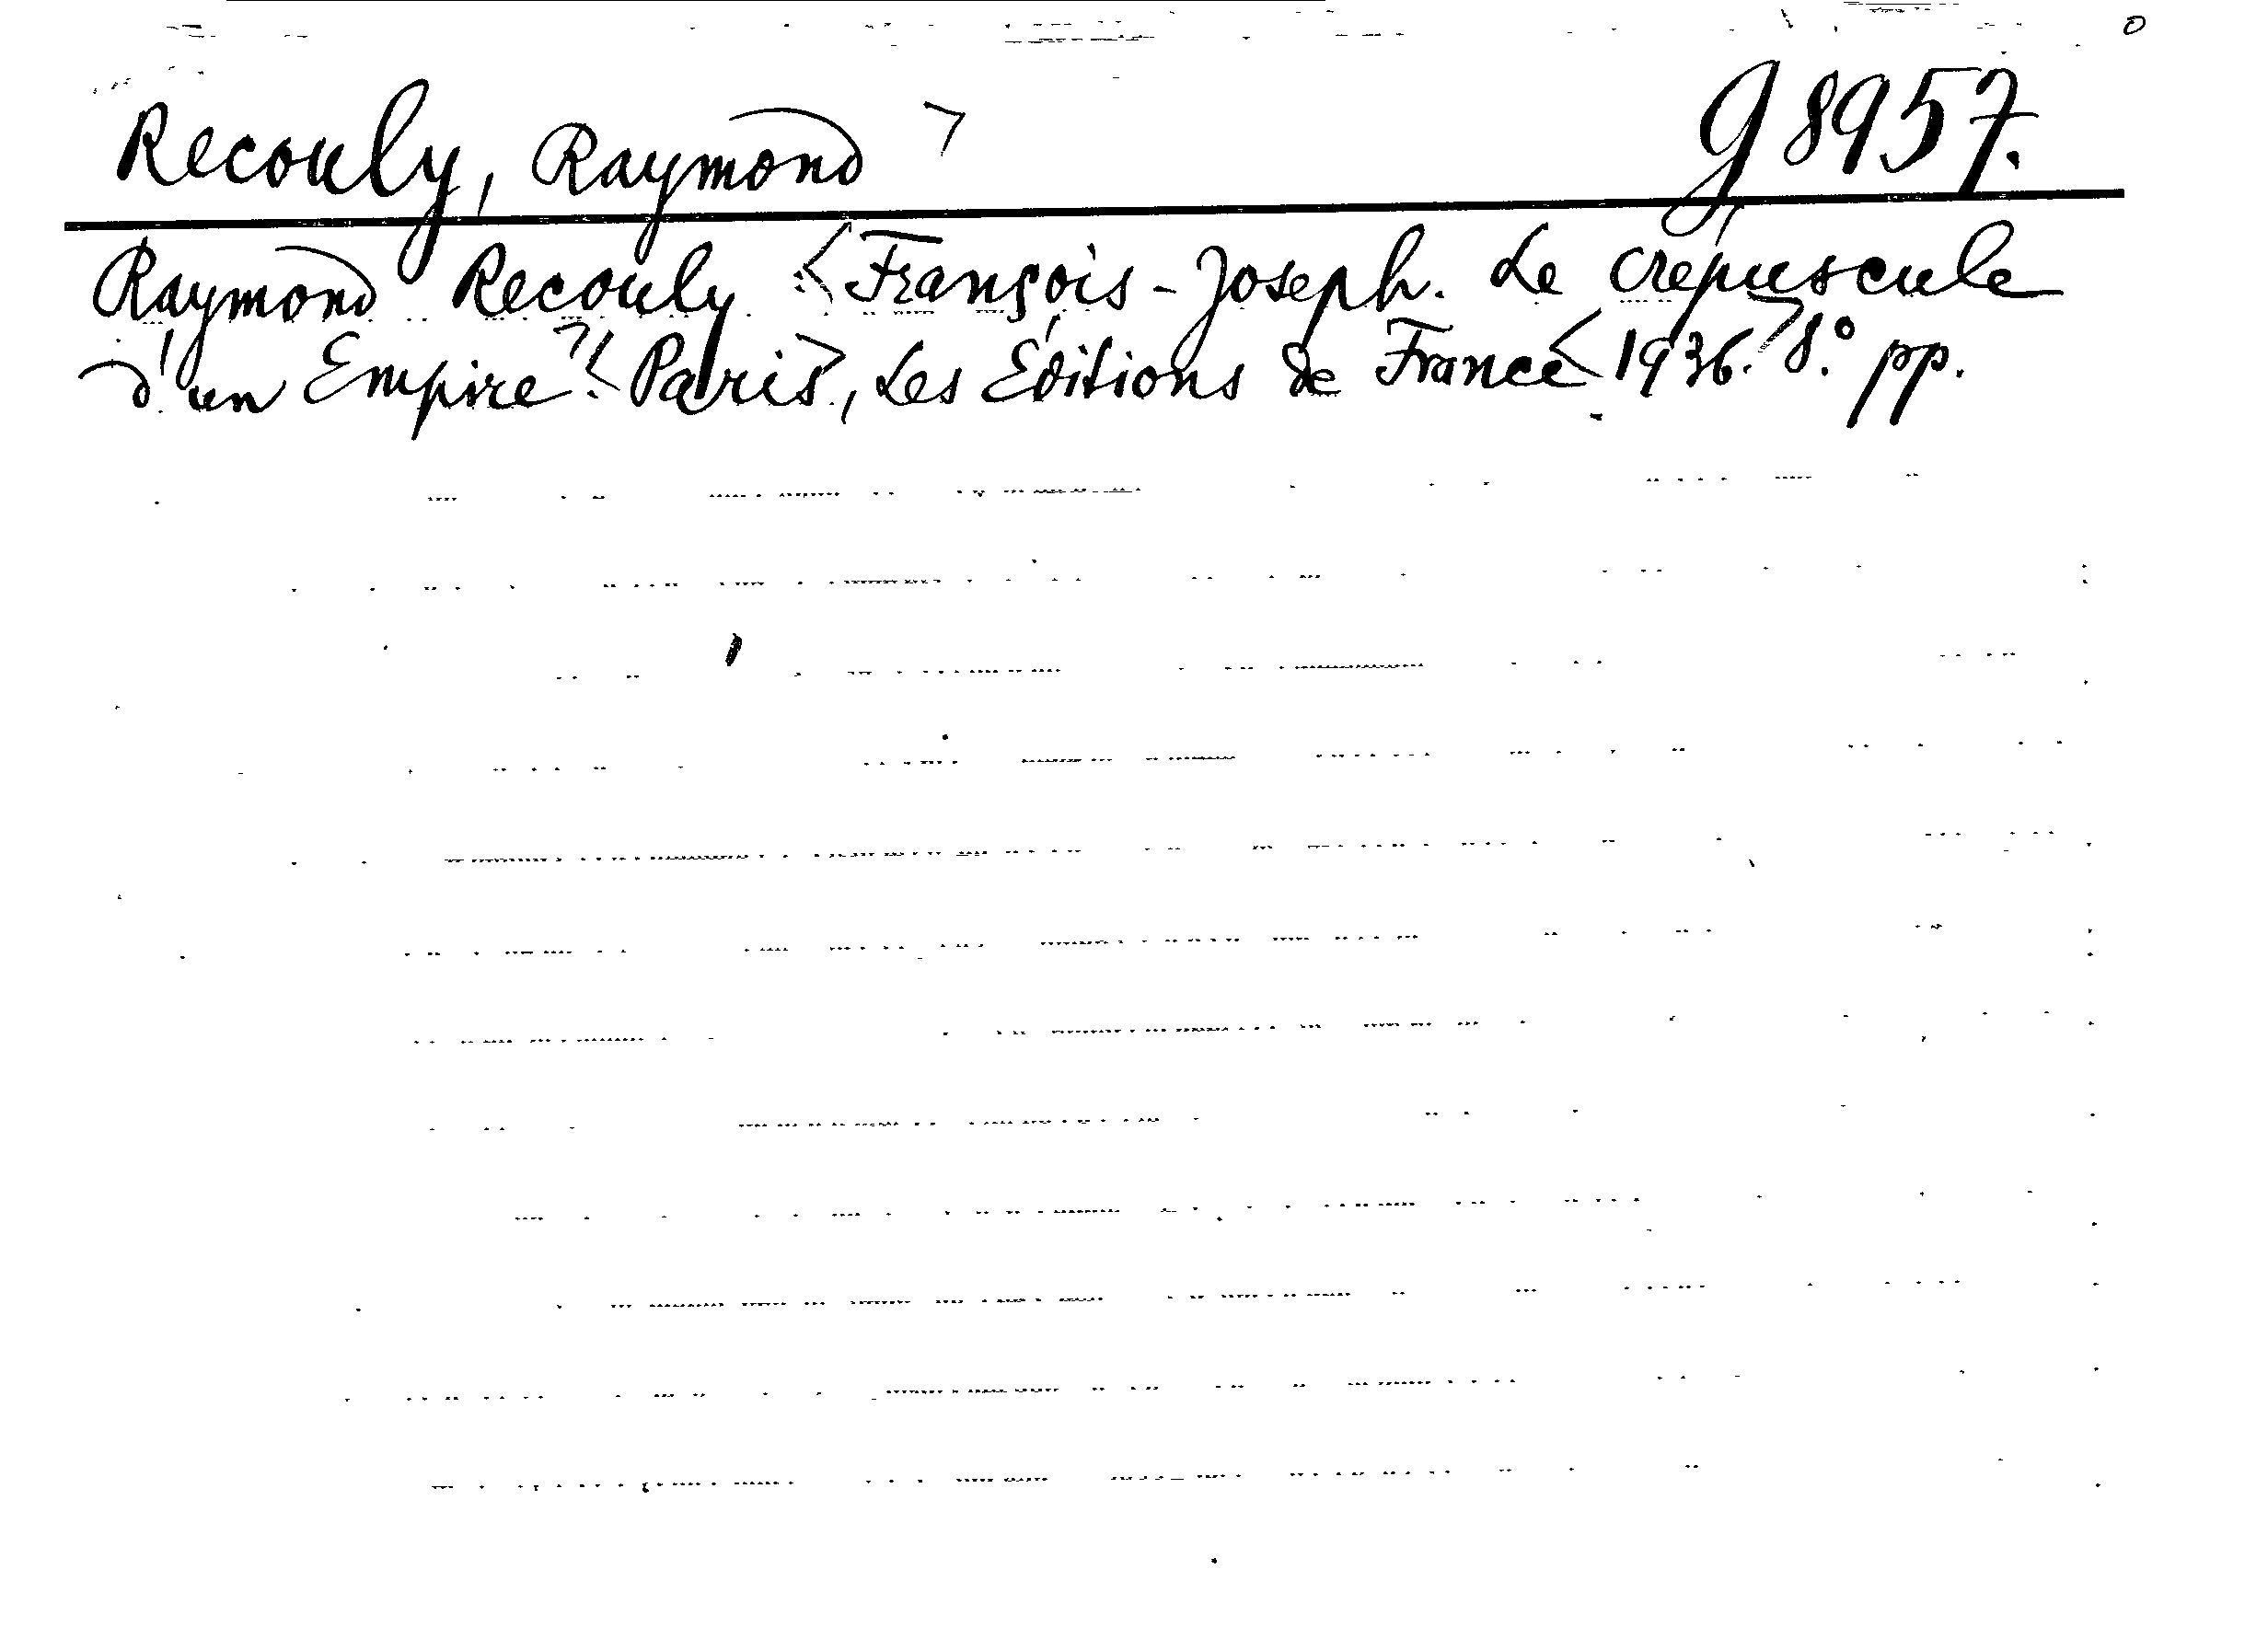 Recouly, Raymond> g 8957.
Raymond Recouly <François-Joseph. Le crépuscule
d'un Empire>. <Paris>, Les Éditions de France <1936.> 8.° pp.